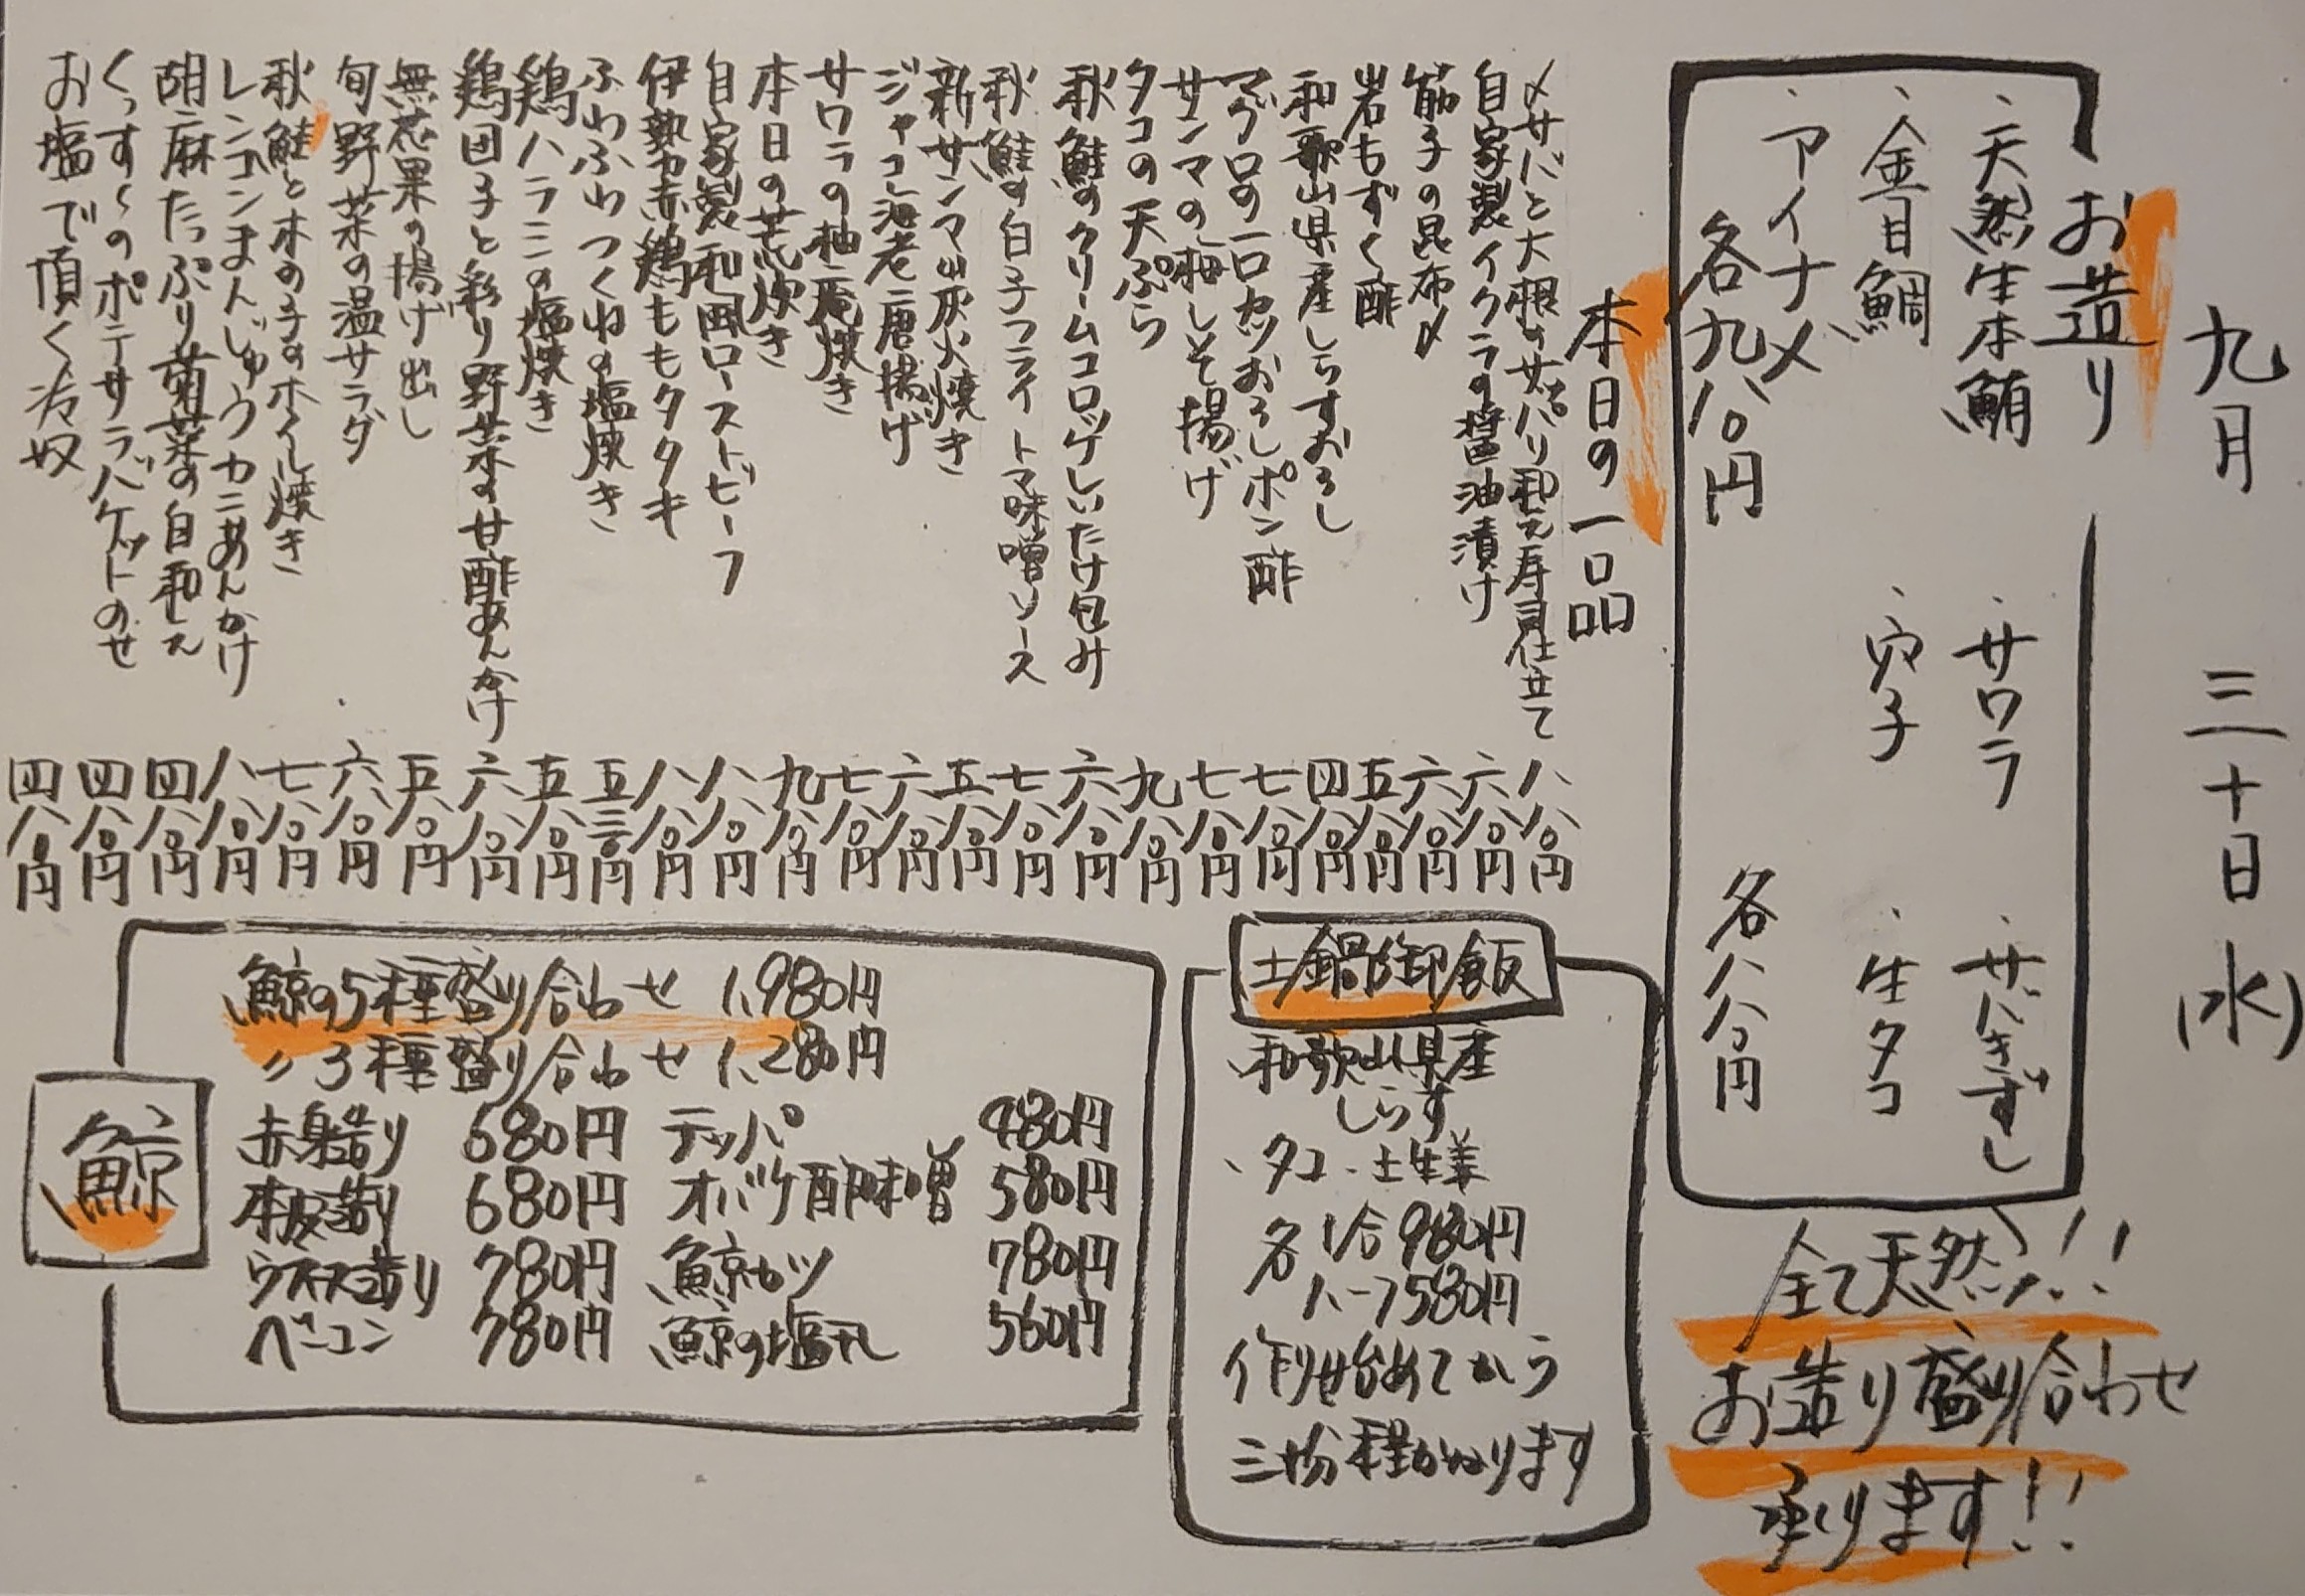 九月 三十日(水)
お造り
・天然生本鮪 ・サワラ ・サバきずし
・金目鯛 ・穴子 ・生タコ
・アイナメ
各九八〇円 各八八〇円
全て天然!!
お造り盛り合わせ
承ります!!
本日の一品
〆サバと大根のサッパリ和え寿司仕立て 八八〇円
自家製イクラの醤油漬け 六八〇円
筋子の昆布〆 六八〇円
岩もずく酢 五八〇円
和歌山県産しらすおろし 四八〇円
マグロの一口カツおろしポン酢 七八〇円
サンマの梅しそ揚げ 七八〇円
タコの天ぷら 九八〇円
秋鮭のクリームコロッケしいたけ包み 六八〇円
秋鮭の白子フライトマ味噌ソース 七八〇円
新サンマ炭火焼き 五八〇円
ジャコ海老唐揚げ 六八〇円
サワラの柚庵焼き 七八〇円
本日の荒炊き 九八〇円
自家製和風ローストビーフ 八八〇円
伊勢赤鶏ももタタキ 八八〇円
ふわふわつくねの塩焼き 五三〇円
鶏ハラミの塩焼き 五八〇円
鶏団子と彩り野菜の甘酢あんかけ 六八〇円
無花果の揚げ出し 五八〇円
旬野菜の温サラダ 六八〇円
秋鮭と木の子のホイル焼き 七八〇円
レンコンまんじゅうカニあんかけ 八八〇円
胡麻たっぷり菊菜の白和え 四八〇円
くっす〜のポテサラバケットのせ 四八〇円
お塩で頂く冷奴 四八〇円
土鍋御飯
・和歌山県産
しらす
・タコ・土生姜
各 1合 980円
ハーフ580円
作り始めてから
三十分程かかります
鯨
鯨の5種盛り合わせ 1,980円
〃 3種盛り合わせ 1,280円
赤身造り 680円 テッパ 480円
本皮造り 680円 オバケ酢味噌 580円
ウネス造り 780円 鯨カツ 780円
ベーコン 780円 鯨の塩汁 560円